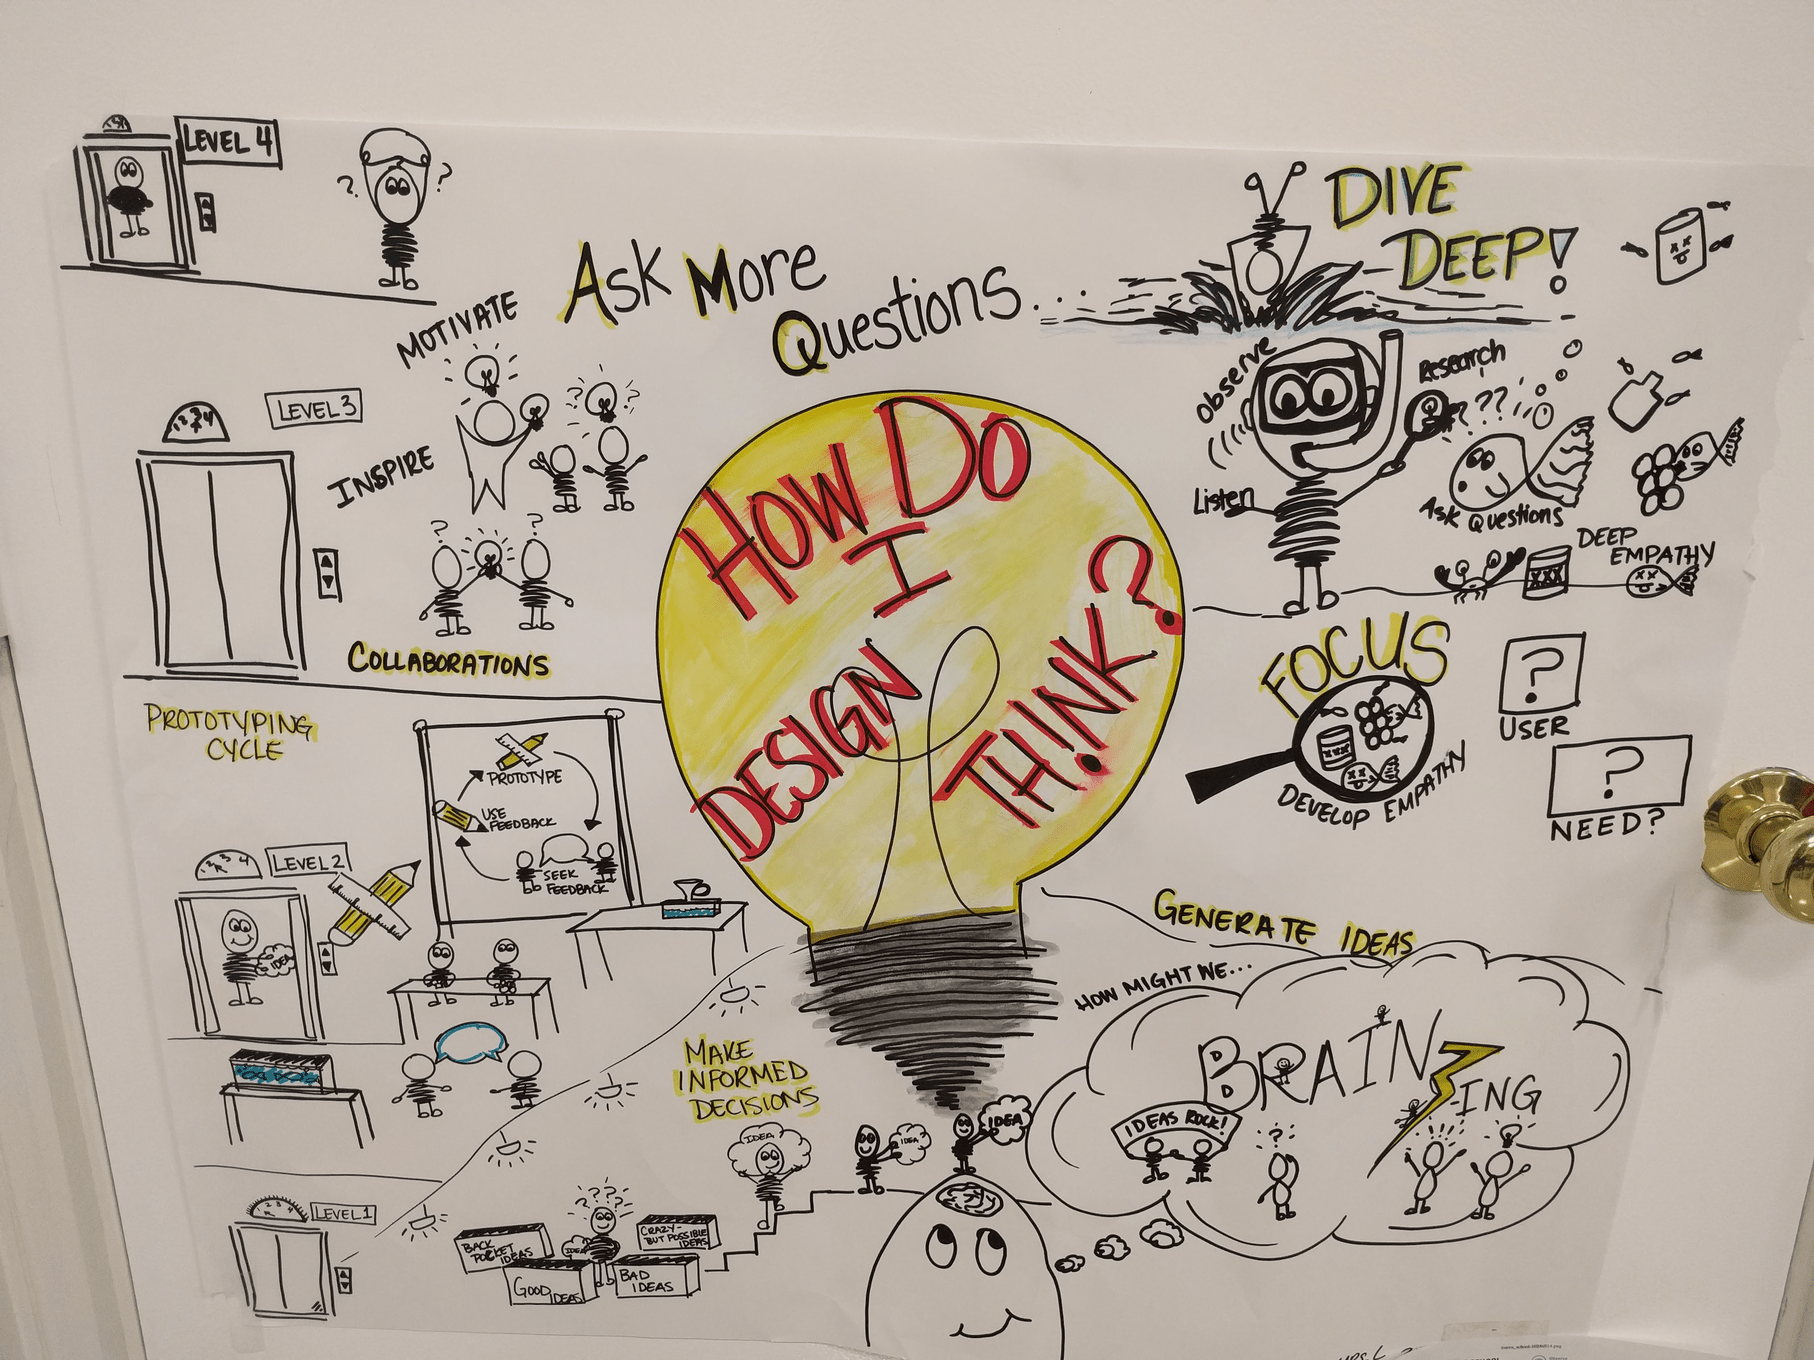 LEVEL 4
?
?
Ask More
Questions...
DIVE
DEEP!
MOTIVATE
INSPIRE
LEVEL 3
COLLABORATIONS
HOW DO
I
DESIGN
TH!NK?
Observe
Research
???
Listen
Ask Questions
DEEP
EMPATHY
XXX
FOCUS
DEVELOP EMPATHY
?
USER
?
NEED?
PROTOTYPING
CYCLE
PROTOTYPE
USE
FEEDBACK
SEEK
FEEDBACK
LEVEL 2
IDEA
GENERATE IDEAS
HOW MIGHT WE...
BRAIN
ING
IDEAS ROCK!
?
MAKE
INFORMED
DECISIONS
IDEA
IDEA
IDEA
LEVEL 1
????
BACK
POCKET IDEAS
IDEA
CRAZY-
BUT POSSIBLE
IDEAS
GOOD IDEAS
BAD
IDEAS